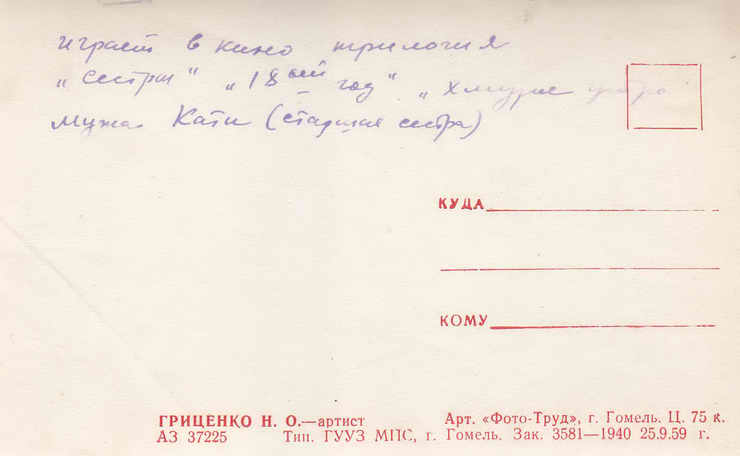 играет в кино трилогия
„Сестры" „18ый год" „Хмурое утро"
мужа Кати (старшая сестра)
КУДА
КОМУ
ГРИЦЕНКО Н. О.—артист Арт. «Фото-Труд», г. Гомель. Ц. 75 к.
АЗ 37225 Тип. ГУУЗ МПС, г. Гомель. Зак. 3581—1940 25.9.59 г.